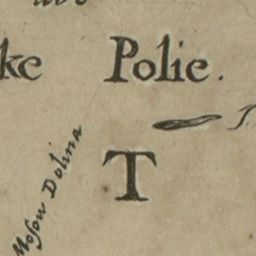 ke Polie.
T
Mosow Dolina